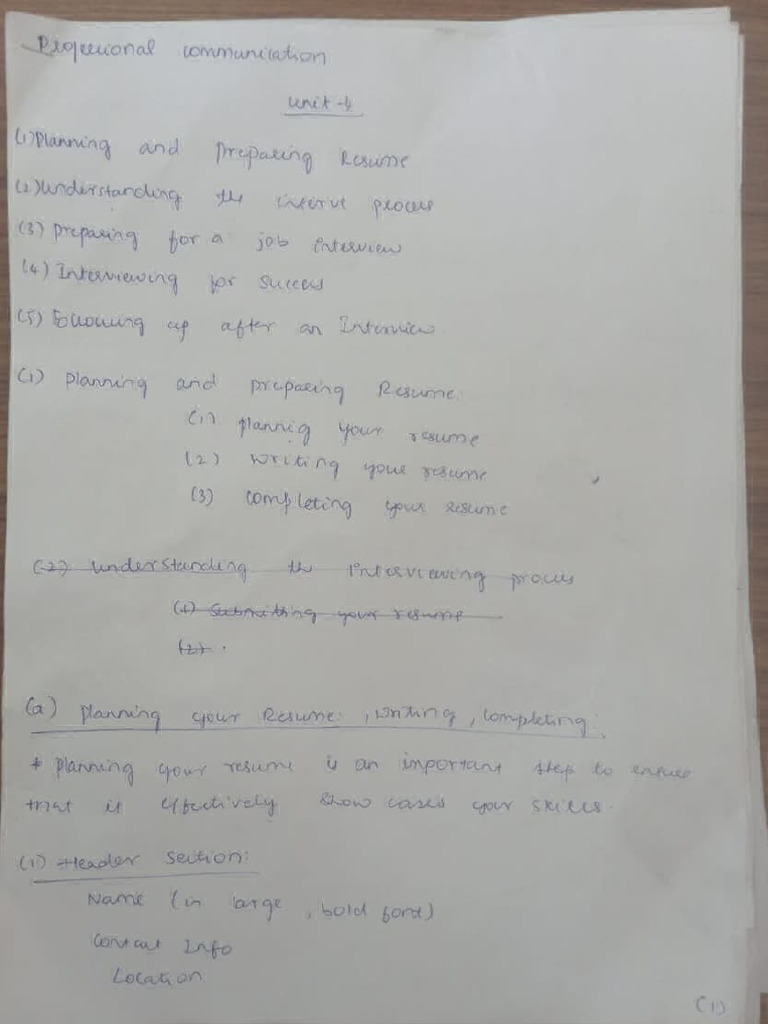 Professional communication
unit-4
(1) Planning and preparing Resume
(2) understanding the interve process
(3) preparing for a job interview
(4) Interviewing for success
(5) Following up after an Interview
(1) Planning and preparing Resume:
(1) plannig your resume
(2) writing your resume
(3) completing your resume
(2) understanding the interviewing process
(1) Submitting your resume
(2) .
(a) planning your Resume: , writing , completing:
* planning your resume is an important step to ensure
that it effectively show cases your skills.
(1) Header section:
Name (in large , bold font)
Contact Info
Location
(1)